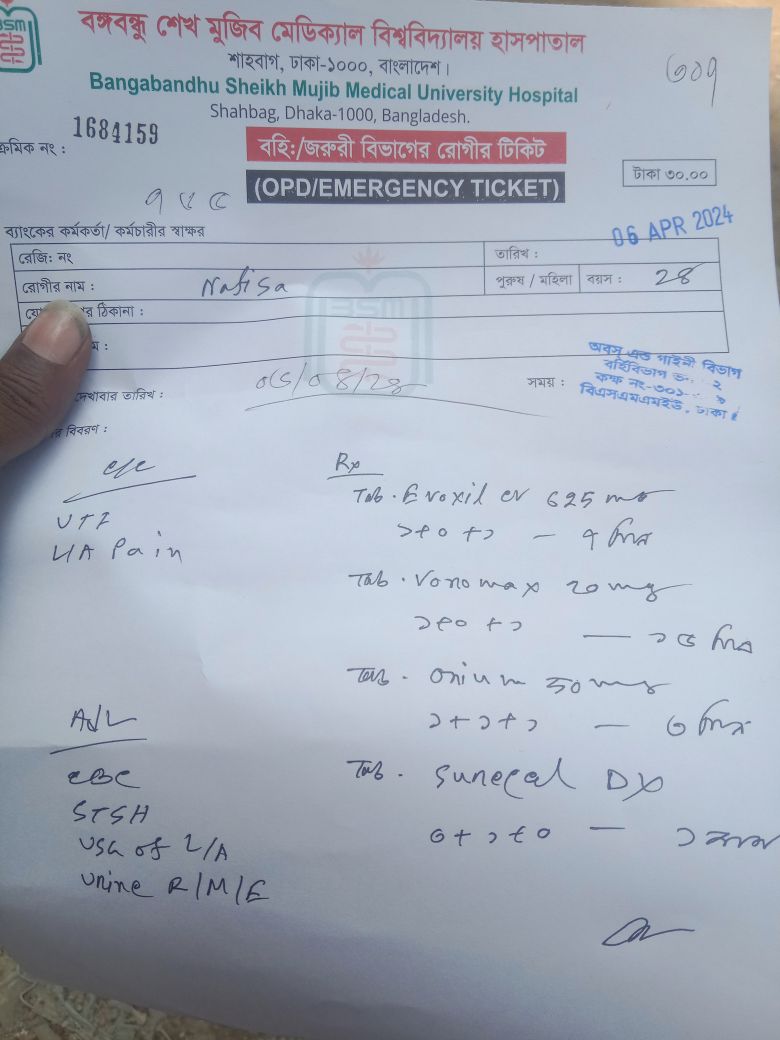 বঙ্গবন্ধু শেখ মুজিব মেডিক্যাল বিশ্ববিদ্যালয় হাসপাতাল
শাহবাগ, ঢাকা-১০০০, বাংলাদেশ।
Bangabandhu Sheikh Mujib Medical University Hospital
Shahbag, Dhaka-1000, Bangladesh.
ক্রমিক নং : 1684159
বহি:/জরুরী বিভাগের রোগীর টিকিট
(OPD/EMERGENCY TICKET)
টাকা ৩০.০০
ব্যাংকের কর্মকর্তা/ কর্মচারীর স্বাক্ষর
06 APR 2024
রেজি: নং
তারিখ :
রোগীর নাম : Nafisa
পুরুষ / মহিলা
বয়স : 28
ঠিকানা :
BSM
অবস এন্ড গাইনী বিভাগ
বহির্বিভাগ ২
কক্ষ নং-৩০১
বিএসএমএমইউ, ঢাকা।
দেখাবার তারিখ :
সময় :
বিবরণ :
c/c
UTI
L/A Pain
Rx
Tab. Evoxil CV 625 mg
১+০+১ — ৭ দিন
Tab. Vonomax 20 mg
১+০+১ — ১৫ দিন
Tab. Onium 50 mg
১+১+১ — ৩ দিন
Tab. Sunecal DX
০+১+০ — ১ মাস
Ad/v
CBC
STSH
USG of L/A
Urine R/M/E